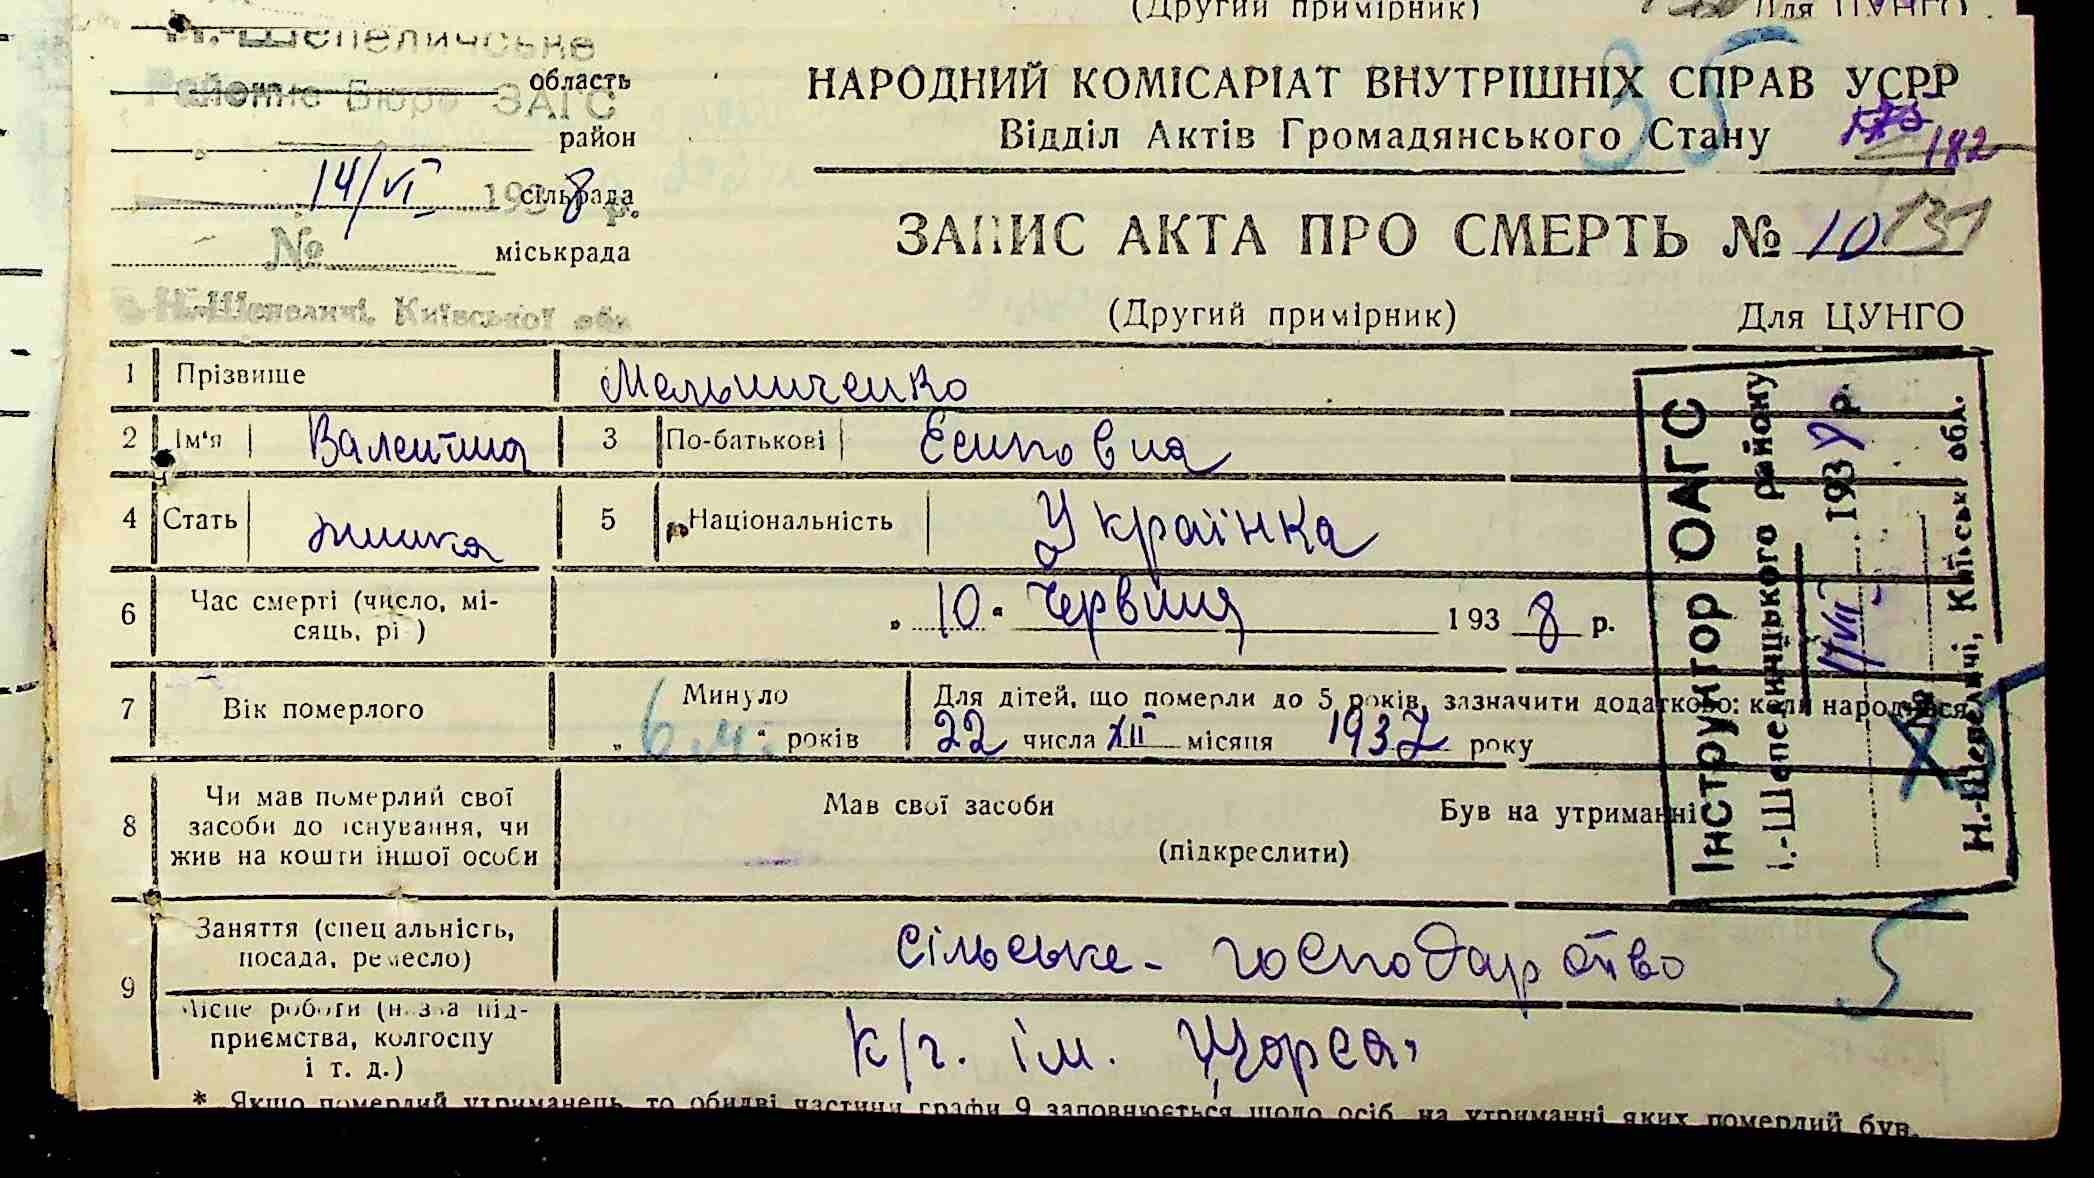 (Другий примірник) Для ЦУНГО
Н.-Шепеличське
Районне Бюро ЗАГС
область
район
14/VI 1938 р.
сільрада
№
міськрада
Н.-Шепеличі, Київської обл.
НАРОДНИЙ КОМІСАРІАТ ВНУТРІШНІХ СПРАВ УСРР
35
Відділ Актів Громадянського Стану
182
ЗАПИС АКТА ПРО СМЕРТЬ № 10 131
(Другий примірник) Для ЦУНГО
1 Прізвище Мельниченко
2 Ім'я Валентина 3 По-батькові Єсиповна
4 Стать жинка 5 Національність Українка
6 Час смерті (число, мі-
сяць, рі ) „ 10 " Червиня 1938 р.
7 Вік померлого Минуло „ 6 м. " років
Для дітей, що померли до 5 років, зазначити додатково: коли народився
22 числа XII місяця 1937 року
8 Чи мав померлий свої
засоби до існування, чи
жив на кошти іншої особи
Мав свої засоби Був на утриманні
(підкреслити)
9 Заняття (спец альність,
посада, ремесло) сільське- господарство
5
Місце роботи (назва під-
приємства, колгоспу
і т. д.) к/г. ім. Щорса,
* Якщо померлий утриманець, то обидві частини графи 9 заповнюється щодо осіб, на утриманні яких померлий був.
Інструктор ОАГС
Н.-Шепелицького району
193 р.
Н.-Шепеличі, Київської обл.